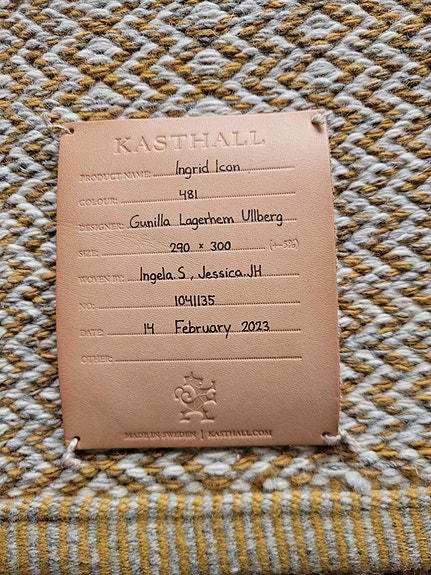 KASTHALL
PRODUCT NAME: Ingrid Icon
COLOUR: 481
DESIGNER: Gunilla Lagerhem Ullberg
SIZE: 290 x 300 (+-5%)
WOVEN BY: Ingela.S, Jessica.JH
NO: 1041135
DATE: 14 February 2023
OTHER:
MADE IN SWEDEN | KASTHALL.COM